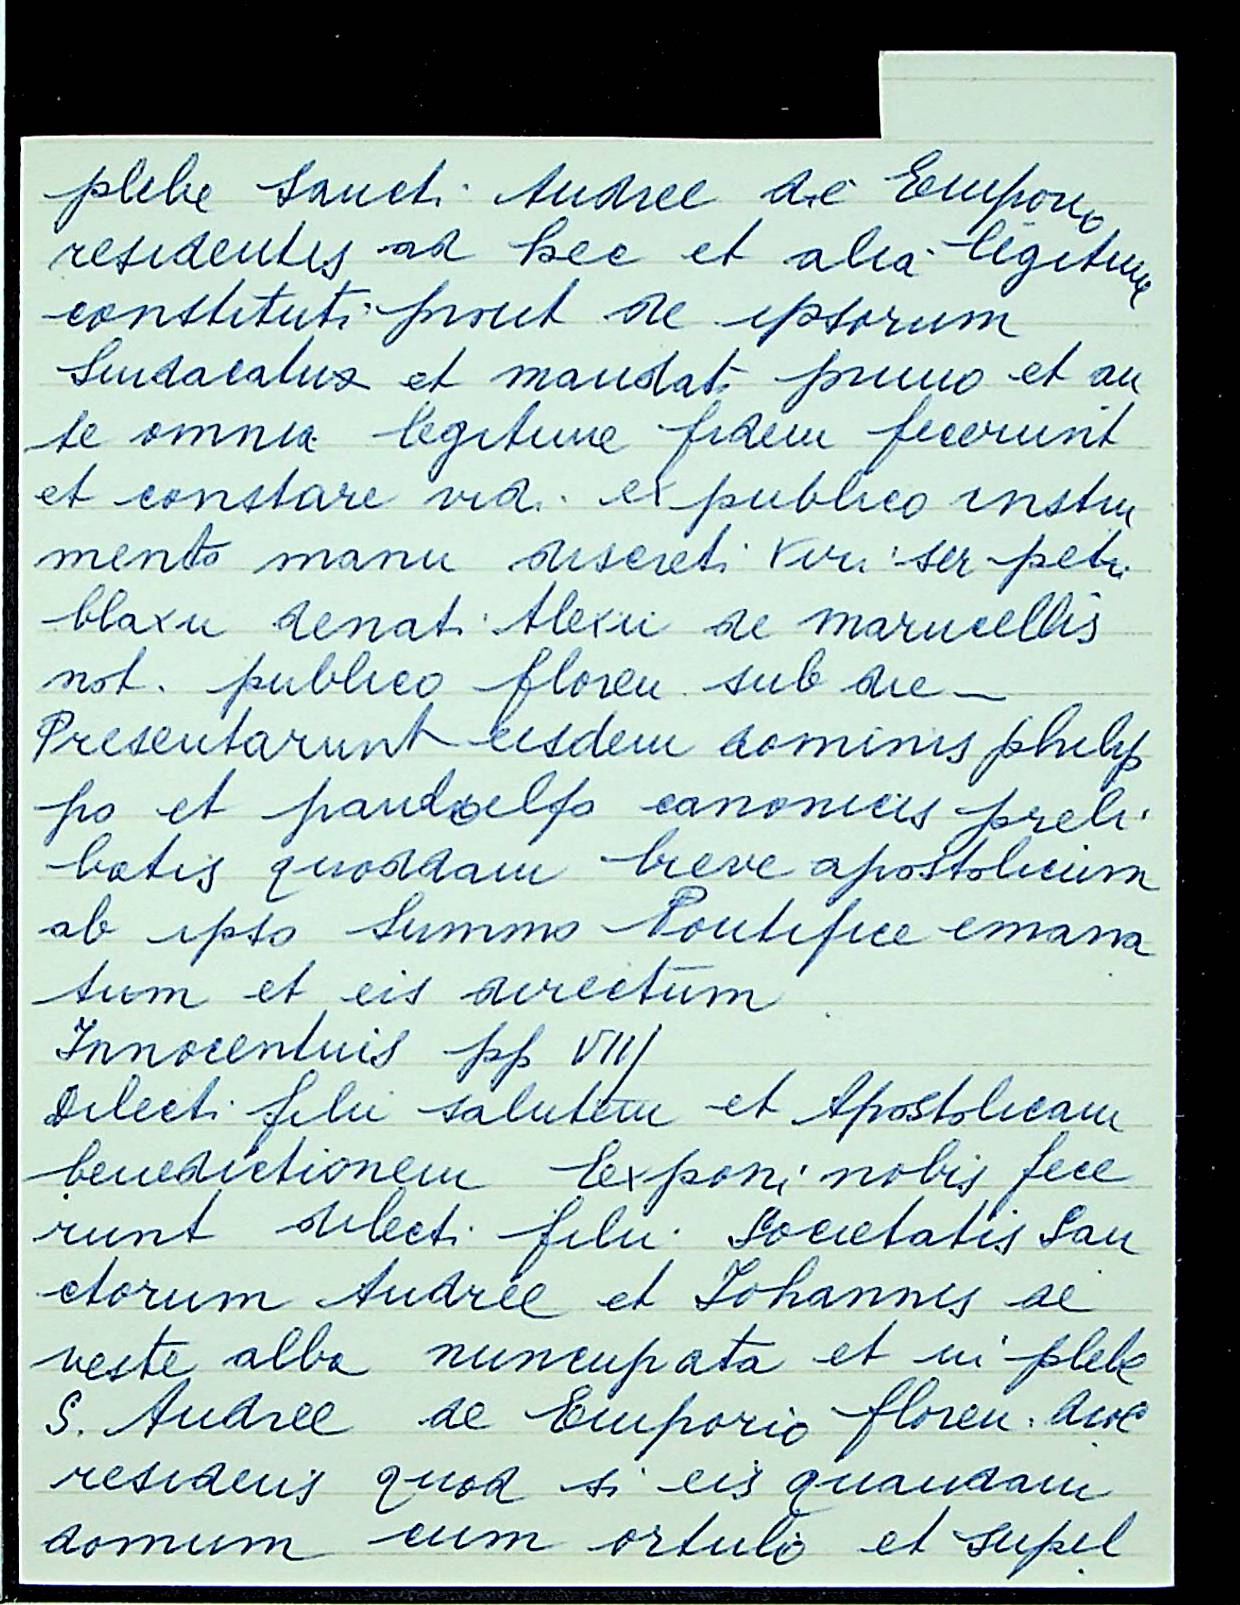 plebe Sancti Andree de Emporio
residentis ad hec et alia legitime
constituti prout de ipsorum
Sindacatus et mandati primo et an
te omnia legitime fidem fecerunt
et constare vid. ex publico instru
mento manu discreti viri ser petri
blaxii denati Alexii de marucellis
not. publico floren. sub die —
Presentarunt eisdem dominis philip
po et pandolfo canonicis preli
batis quoddam breve apostolicum
ab ipso Summo Pontifice emana
tum et eis directum
Innocentius pp VIIJ
Dilecti filii salutem et Apostolicam
benedictionem Exponi nobis fece
runt dilecti filii Societatis San
ctorum Andree et Johannis de
veste alba nuncupata et in plebe
S. Andree de Emporio floren. dioc
residens quod si eis quandam
domum cum ortulo et supel